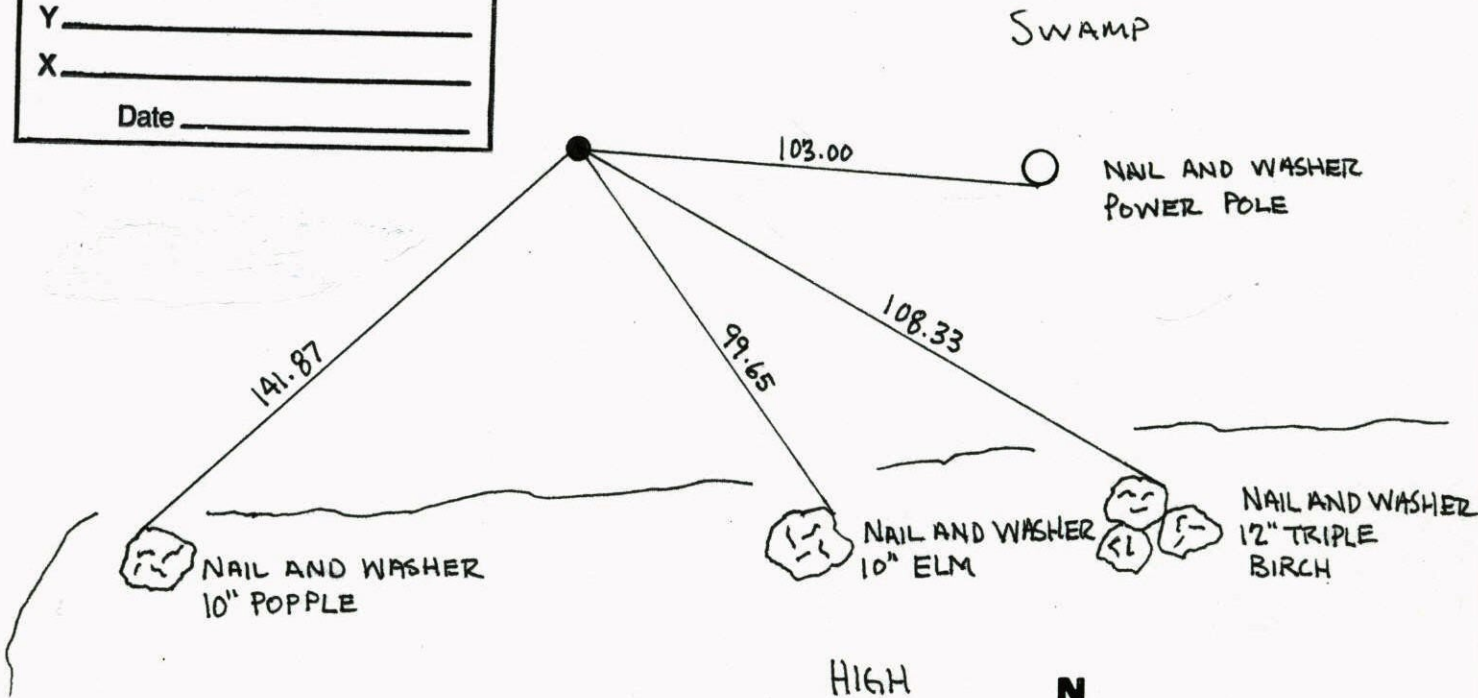 Y
X
Date
SWAMP
103.00
NAIL AND WASHER
POWER POLE
141.87
99.65
108.33
NAIL AND WASHER
10" POPPLE
NAIL AND WASHER
10" ELM
NAIL AND WASHER
12" TRIPLE
BIRCH
HIGH
N